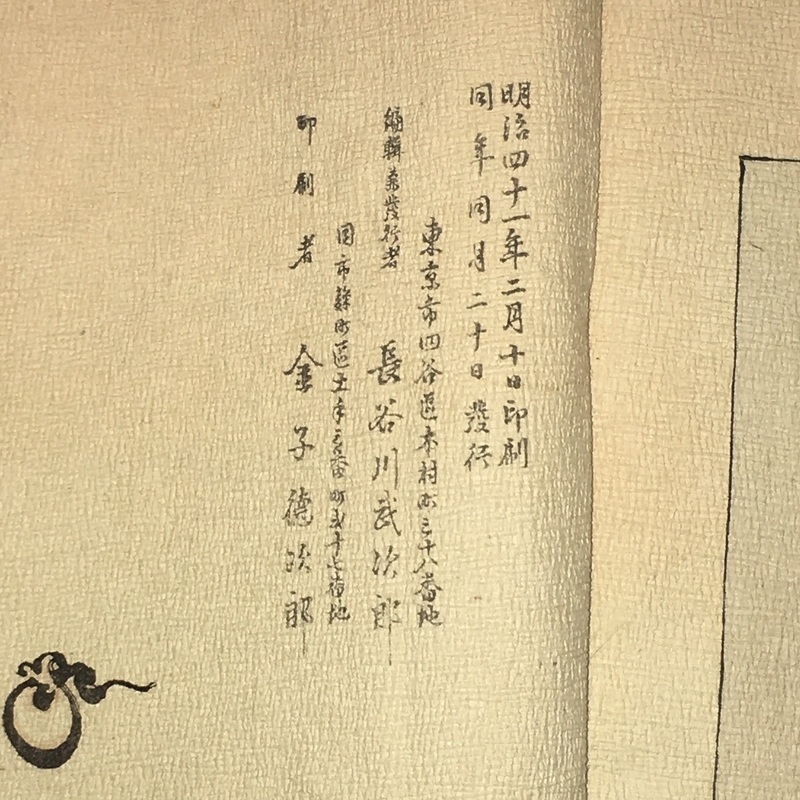 明治四十一年二月十日印刷
同年同月二十日發行
東京市四谷區本村町三十八番地
編輯兼發行者 長谷川武次郎
同市麹町區五番町貳十七番地
印刷者 金子德次郎